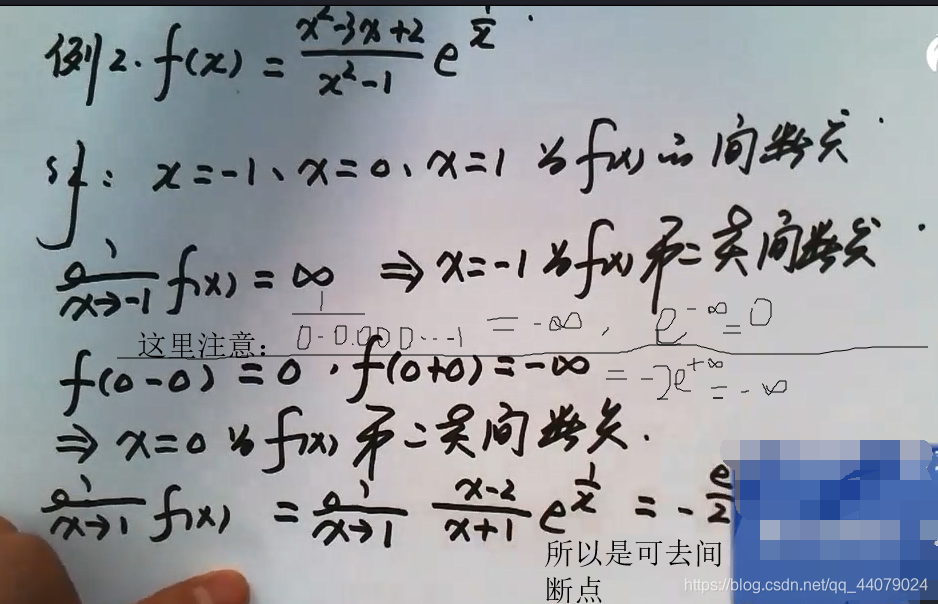 例2. f(x) = \frac{x²-3x+2}{x²-1} e^{\frac{1}{x}}.
解: x=-1、x=0、x=1 为 f(x) 的间断点.
\lim_{x→-1} f(x) = ∞ ⇒ x=-1 为 f(x) 第二类间断点.
这里注意: \frac{1}{0-0.000…1} = -∞, e^{-∞}=0
f(0-0) = 0, f(0+0) = -∞ = -2e^{+∞} = -∞
⇒ x=0 为 f(x) 第二类间断点.
\lim_{x→1} f(x) = \lim_{x→1} \frac{x-2}{x+1} e^{\frac{1}{x}} = -\frac{e}{2}
所以是可去间
断点
https://blog.csdn.net/qq_44079024